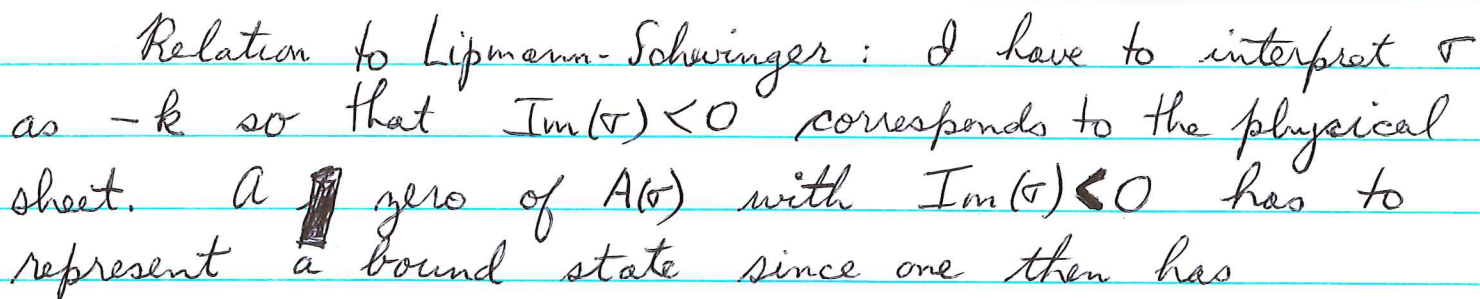 Relation to Lipmann-Schwinger: I have to interpret σ
as -k so that Im(σ)<0 corresponds to the physical
sheet. A zero of A(σ) with Im(σ)<0 has to
represent a bound state since one then has